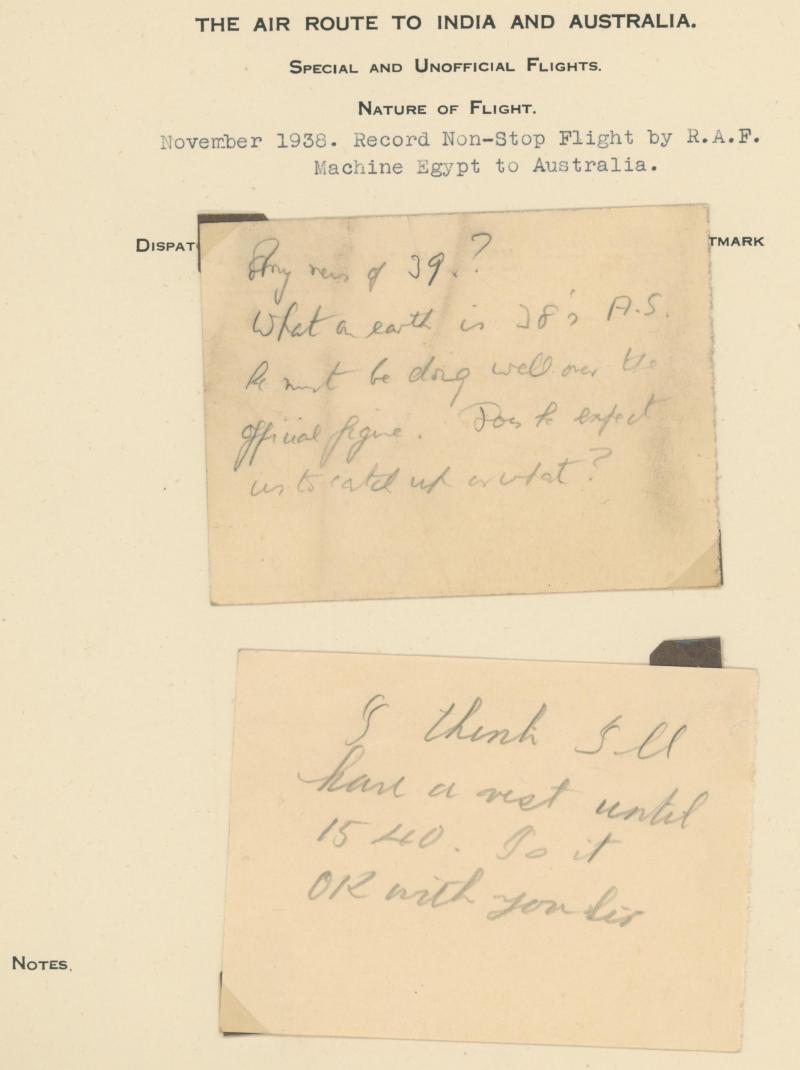 THE AIR ROUTE TO INDIA AND AUSTRALIA.
SPECIAL AND UNOFFICIAL FLIGHTS.
NATURE OF FLIGHT.
November 1938. Record Non-Stop Flight by R.A.F.
Machine Egypt to Australia.
DISPAT
TMARK
Any news of 39.?
What on earth is 38's A.S.
he must be doing well over the
official figure. Does he expect
us to catch up or what?
I think I'll
have a rest until
1540. Is it
OK with you Sir
NOTES.